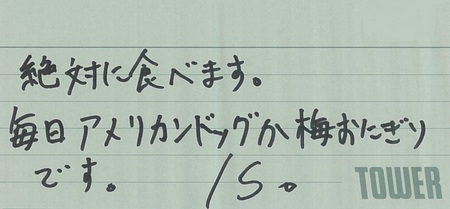 絶対に食べます。
毎日アメリカンドッグか梅おにぎり
です。 /S。
TOWER